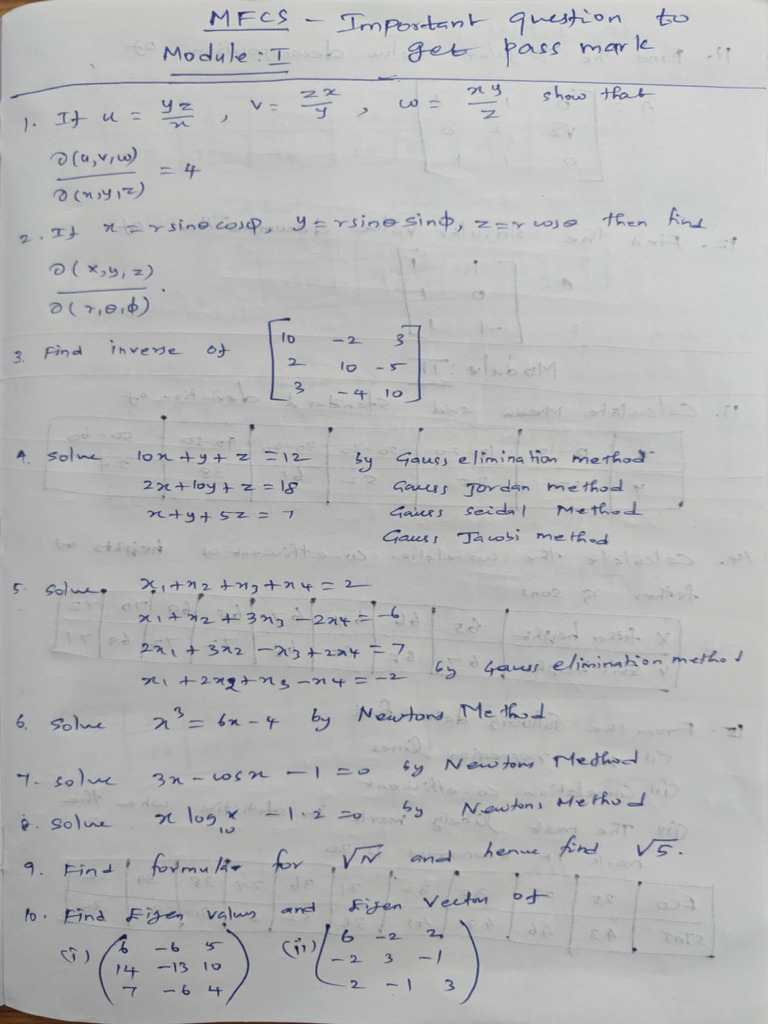 MFCS - Important question to
Module : I get pass mark
1. If u = yz/x , v = zx/y , w = xy/z show that
∂(u,v,w)/∂(x,y,z) = 4
2. If x = r sinθ cosφ, y = r sinθ sinφ, z = r cosθ then find
∂(x,y,z)/∂(r,θ,φ).
3. Find inverse of [10 -2 3
2 10 -5
3 -4 10]
4. Solve 10x + y + z = 12 by Gauss elimination method
2x + 10y + z = 18 Gauss Jordan method
x + y + 5z = 7 Gauss Seidal Method
Gauss Jacobi method
5. Solve x1 + x2 + x3 + x4 = 2
x1 + x2 + 3x3 - 2x4 = -6
2x1 + 3x2 - x3 + 2x4 = 7
x1 + 2x2 + x3 - x4 = -2 by Gauss elimination method
6. Solve x³ = 6x - 4 by Newtons Method
7. Solve 3x - cosx - 1 = 0 by Newtons Method
8. Solve x log10 x - 1.2 = 0 by Newtons Method
9. Find formula for √N and hence find √5.
10. Find Eigen values and Eigen Vector of
(i) (6 -6 5 (ii) (6 -2 2
14 -13 10 -2 3 -1
7 -6 4) 2 -1 3)